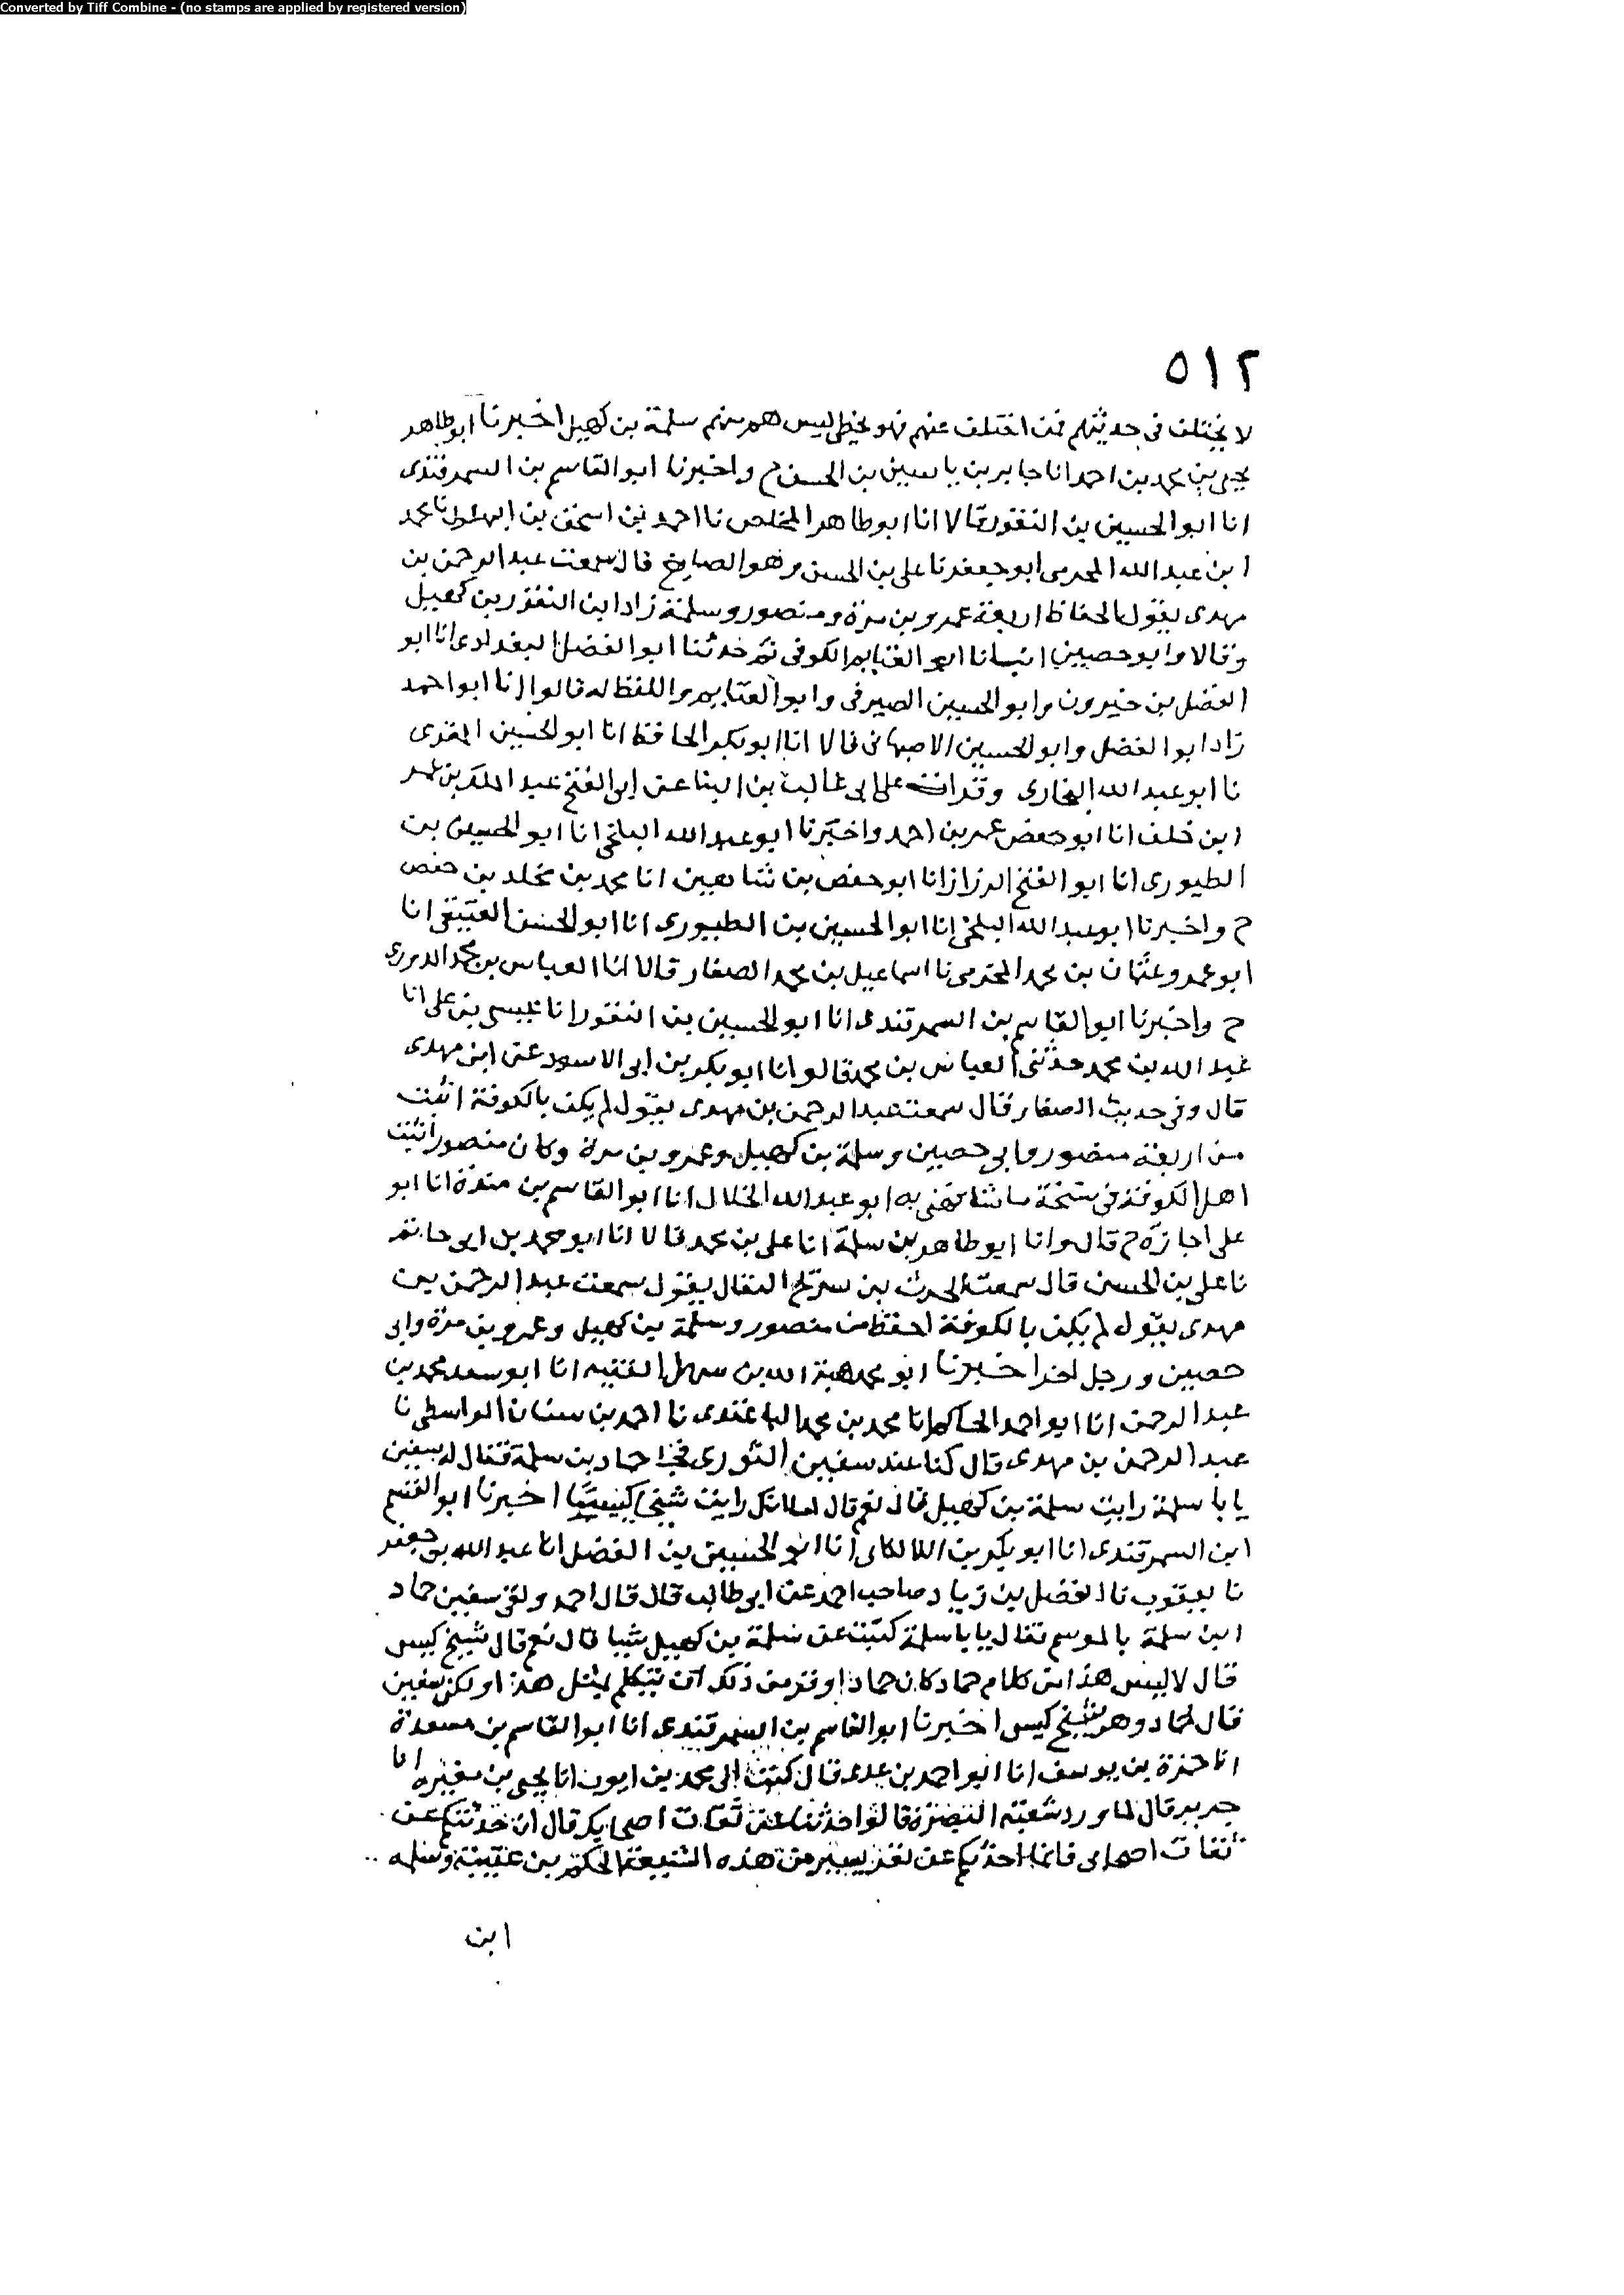 Converted by Tiff Combine - (no stamps are applied by registered version)
٥١٢
لا يختلف في حديثهم فمن اختلف عنهم فهو يخطئ ليس هم منهم سلمة بن كهيل اخبرنا ابو طاهر
يحيى بن محمد بن احمد انا جابر بن ياسين بن الحسن ح واخبرنا ابو القاسم بن السمرقندي
انا ابو الحسين بن النقور قالا انا ابو طاهر المخلص نا احمد بن اسحق بن نا محمد
ابن عبد الله المخرمي ابو جعفر نا علي بن الحسن وهو الصايغ قال سمعت عبد الرحمن بن
مهدي يقول الحفاظ اربعة عمرو بن مرة ومنصور وسلمة زاد ابن النقور بن كهيل
وقالا وابو حصين انبانا ابو الغنايم الكوفي ثم حدثنا ابو الفضل البغدادي انا ابو
الفضل بن خيرون وابو الحسين الصيرفي وابو الغنايم واللفظ له قالوا انا ابو احمد
زاد ابو الفضل وابو الحسين الاصبهاني قالا انا ابو بكر الحافظ انا ابو الحسين المقري
نا ابو عبد الله البخاري وقرات على ابي غالب بن البنا عن ابي الفتح عبد الملك بن عمر
ابن خلف انا ابو حفص عمر بن احمد واخبرنا ابو عبد الله البلخي انا ابو الحسين بن
الطيوري انا ابو الفتح الرزاز انا ابو حفص بن شاهين انا محمد بن مخلد بن حفص
ح واخبرنا ابو عبد الله البلخي انا ابو الحسين بن الطيوري انا ابو الحسن العتيقي انا
ابو عمرو عثمان بن محمد المخرمي نا اسماعيل بن محمد الصفار قالا انا العباس بن محمد الدوري
ح واخبرنا ابو القاسم بن السمرقندي انا ابو الحسين بن النقور انا عيسى بن علي انا
عبد الله بن محمد حدثني العباس بن محمد قالوا انا ابو بكر بن ابي الاسود عن ابن مهدي
قال وفي حديث الصفار قال سمعت عبد الرحمن بن مهدي يقول لم يكن بالكوفة اثبت
من اربعة منصور وابي حصين وسلمة بن كهيل وعمرو بن مرة وكان منصور اثبت
اهل الكوفة في نسخة ما شافهني به ابو عبد الله الخلال انا ابو القاسم بن مندة انا ابو
علي اجازة ح قال وانا ابو طاهر بن سلمة انا علي بن محمد قالا انا ابو محمد بن ابي حاتم
نا علي بن الحسن قال سمعت الحرث بن سريج النقال يقول سمعت عبد الرحمن بن
مهدي يقول لم يكن بالكوفة احفظ من منصور وسلمة بن كهيل وعمرو بن مرة وابي
حصين ورجل اخر اخبرنا ابو محمد هبة الله بن سهل الفقيه انا ابو سعد محمد بن
عبد الرحمن انا ابو احمد الحاكم انا محمد بن محمد الباغندي نا احمد بن سنان الواسطي نا
عبد الرحمن بن مهدي قال كنا عند سفين الثوري فجا حماد بن سلمة فقال له سفين
يا با سلمة رايت سلمة بن كهيل قال نعم قال اما انك رايت شيخا كيسا اخبرنا ابو القسم
ابن السمرقندي انا ابو بكر بن اللالكاي انا ابو الحسين بن الفضل انا عبد الله بن جعفر
نا يعقوب نا الفضل بن زياد صاحب احمد عن ابي طالب قال قال احمد ولقي سفين حماد
ابن سلمة بالموسم فقال يا با سلمة كتبت عن سلمة بن كهيل شيا قال نعم قال شيخ كيس
قال لا ليس هذا من كلام حماد كان حماد اوقر من ذلك ان يتكلم بمثل هذا ولكن سفين
قال لحماد وهو شيخ كيس اخبرنا ابو القاسم بن السمرقندي انا ابو القاسم بن مسعدة
انا حمزة بن يوسف انا ابو احمد بن عدي قال كتبت الى محمد بن ايوب انا يحيى بن مغيرة انا
جرير قال لما ورد شعبة البصرة قالوا حدثنا عن ثقات اصحابك قال ان حدثتكم عن
ثقات اصحابي فانما احدثكم عن نفر يسير من هذه الشيعة الحكم بن عتيبة وسلمه
ابن